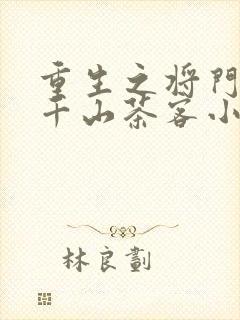 重生之将门
千山茶客小
林良劃